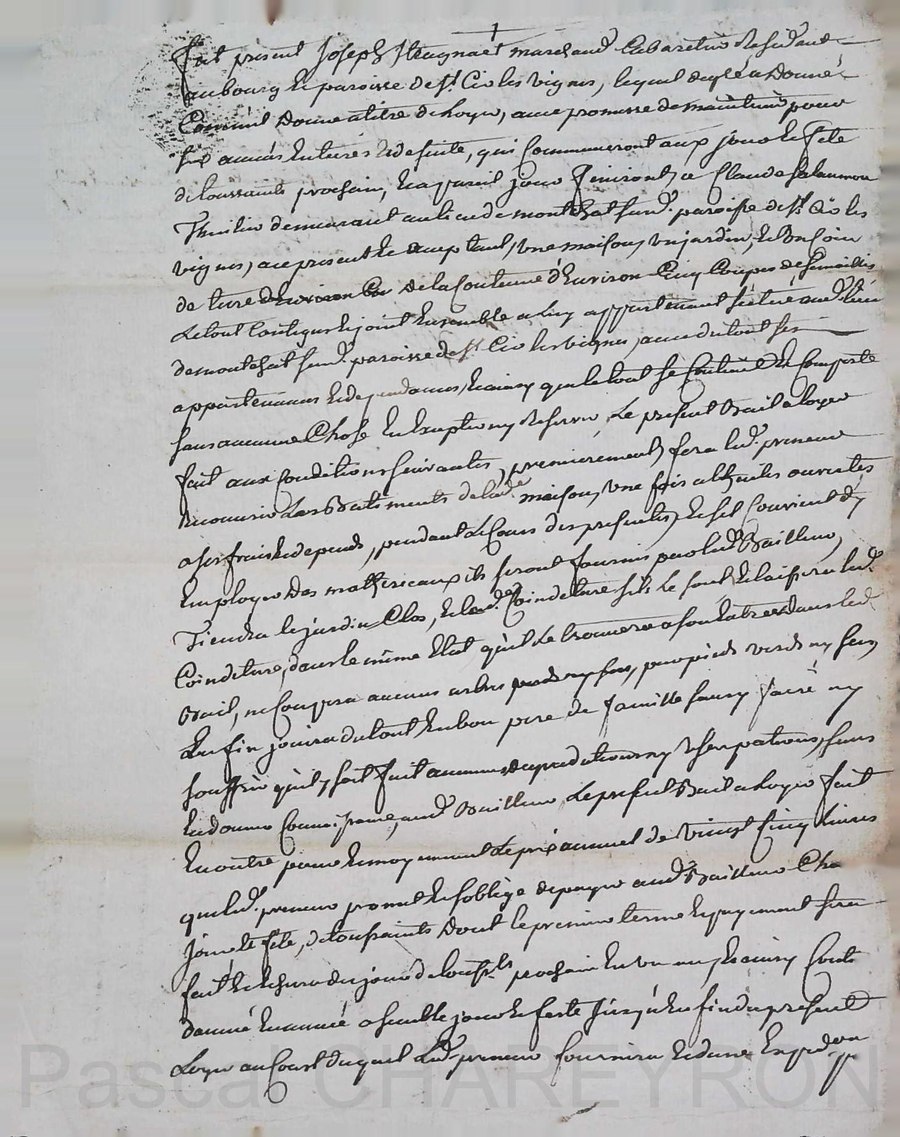 fut présent Joseph marchand Cabaretier Résidant
au bourg et paroisse de St Cir les vignes, lequel de gré a Donné
Comme il Donne a titre de Loyer, avec promesse de maintenir pour
six années Entieres & de suitte, qui Commenceront aux jour et fete
de toussaints prochain, Et a pareil jour finiront, a Claude
demeurant au lieu de montchat susd. paroisse de St Cir les
vignes, au present et acceptant, une maison, un jardin, et un Coin
de terre de la Contenue d'Environ Cinq Coupes de semailles
Le tout Contigus et joint Ensemble a Luy appartenant situé aud. lieu
de montchat susd. paroisse de St Cir les vignes, avec du tout ses
appartenances et dependances, Et ainsy que le tout se Contient et Comporte
sans aucune Chose En Exception ny Reserve, Le present Bail a loyer
fait aux Conditions suivantes, premierement, fera led. preneur
recouvrir Les Batiments de lad. maison, une fois a touttes ouvertes
a ses frais et depends, pendant le Cours des presentes, et s'il Convient d'y
Employer des matteriaux ils seront fournis par led. Bailleur,
Tiendra le jardin Clos, et led. Coin de terre s'il le faut, et laissera led.
Coin de terre, dans le même Etat qu'il le trouvera a son Entrée dans led.
Bail, ne Coupera aucuns arbres par pieds verds ny secs
Enfin jouira du tout En bon pere de famille sans y faire ny
souffrir qu'il y soit fait aucunes degradations ny usurpations, sans
En donner Connoissance, aud. Bailleur, Le present Bail a Loyer fait
En outre pour et moyennant Le prix annuel de vingt Cinq Livres
que led. preneur promet et s'oblige de payer aud. Bailleur Chaque
jour et fete, de toussaints Dont le premier terme et payement sera
fait et Echeu du jour de touss.ts prochain En un an, Et ainsy Continuer
d'année En année a semble jour et feste jusqu'a Enfin du present
Loyer au Court duquel Led. preneur fournira
Pascal CHAREYRON